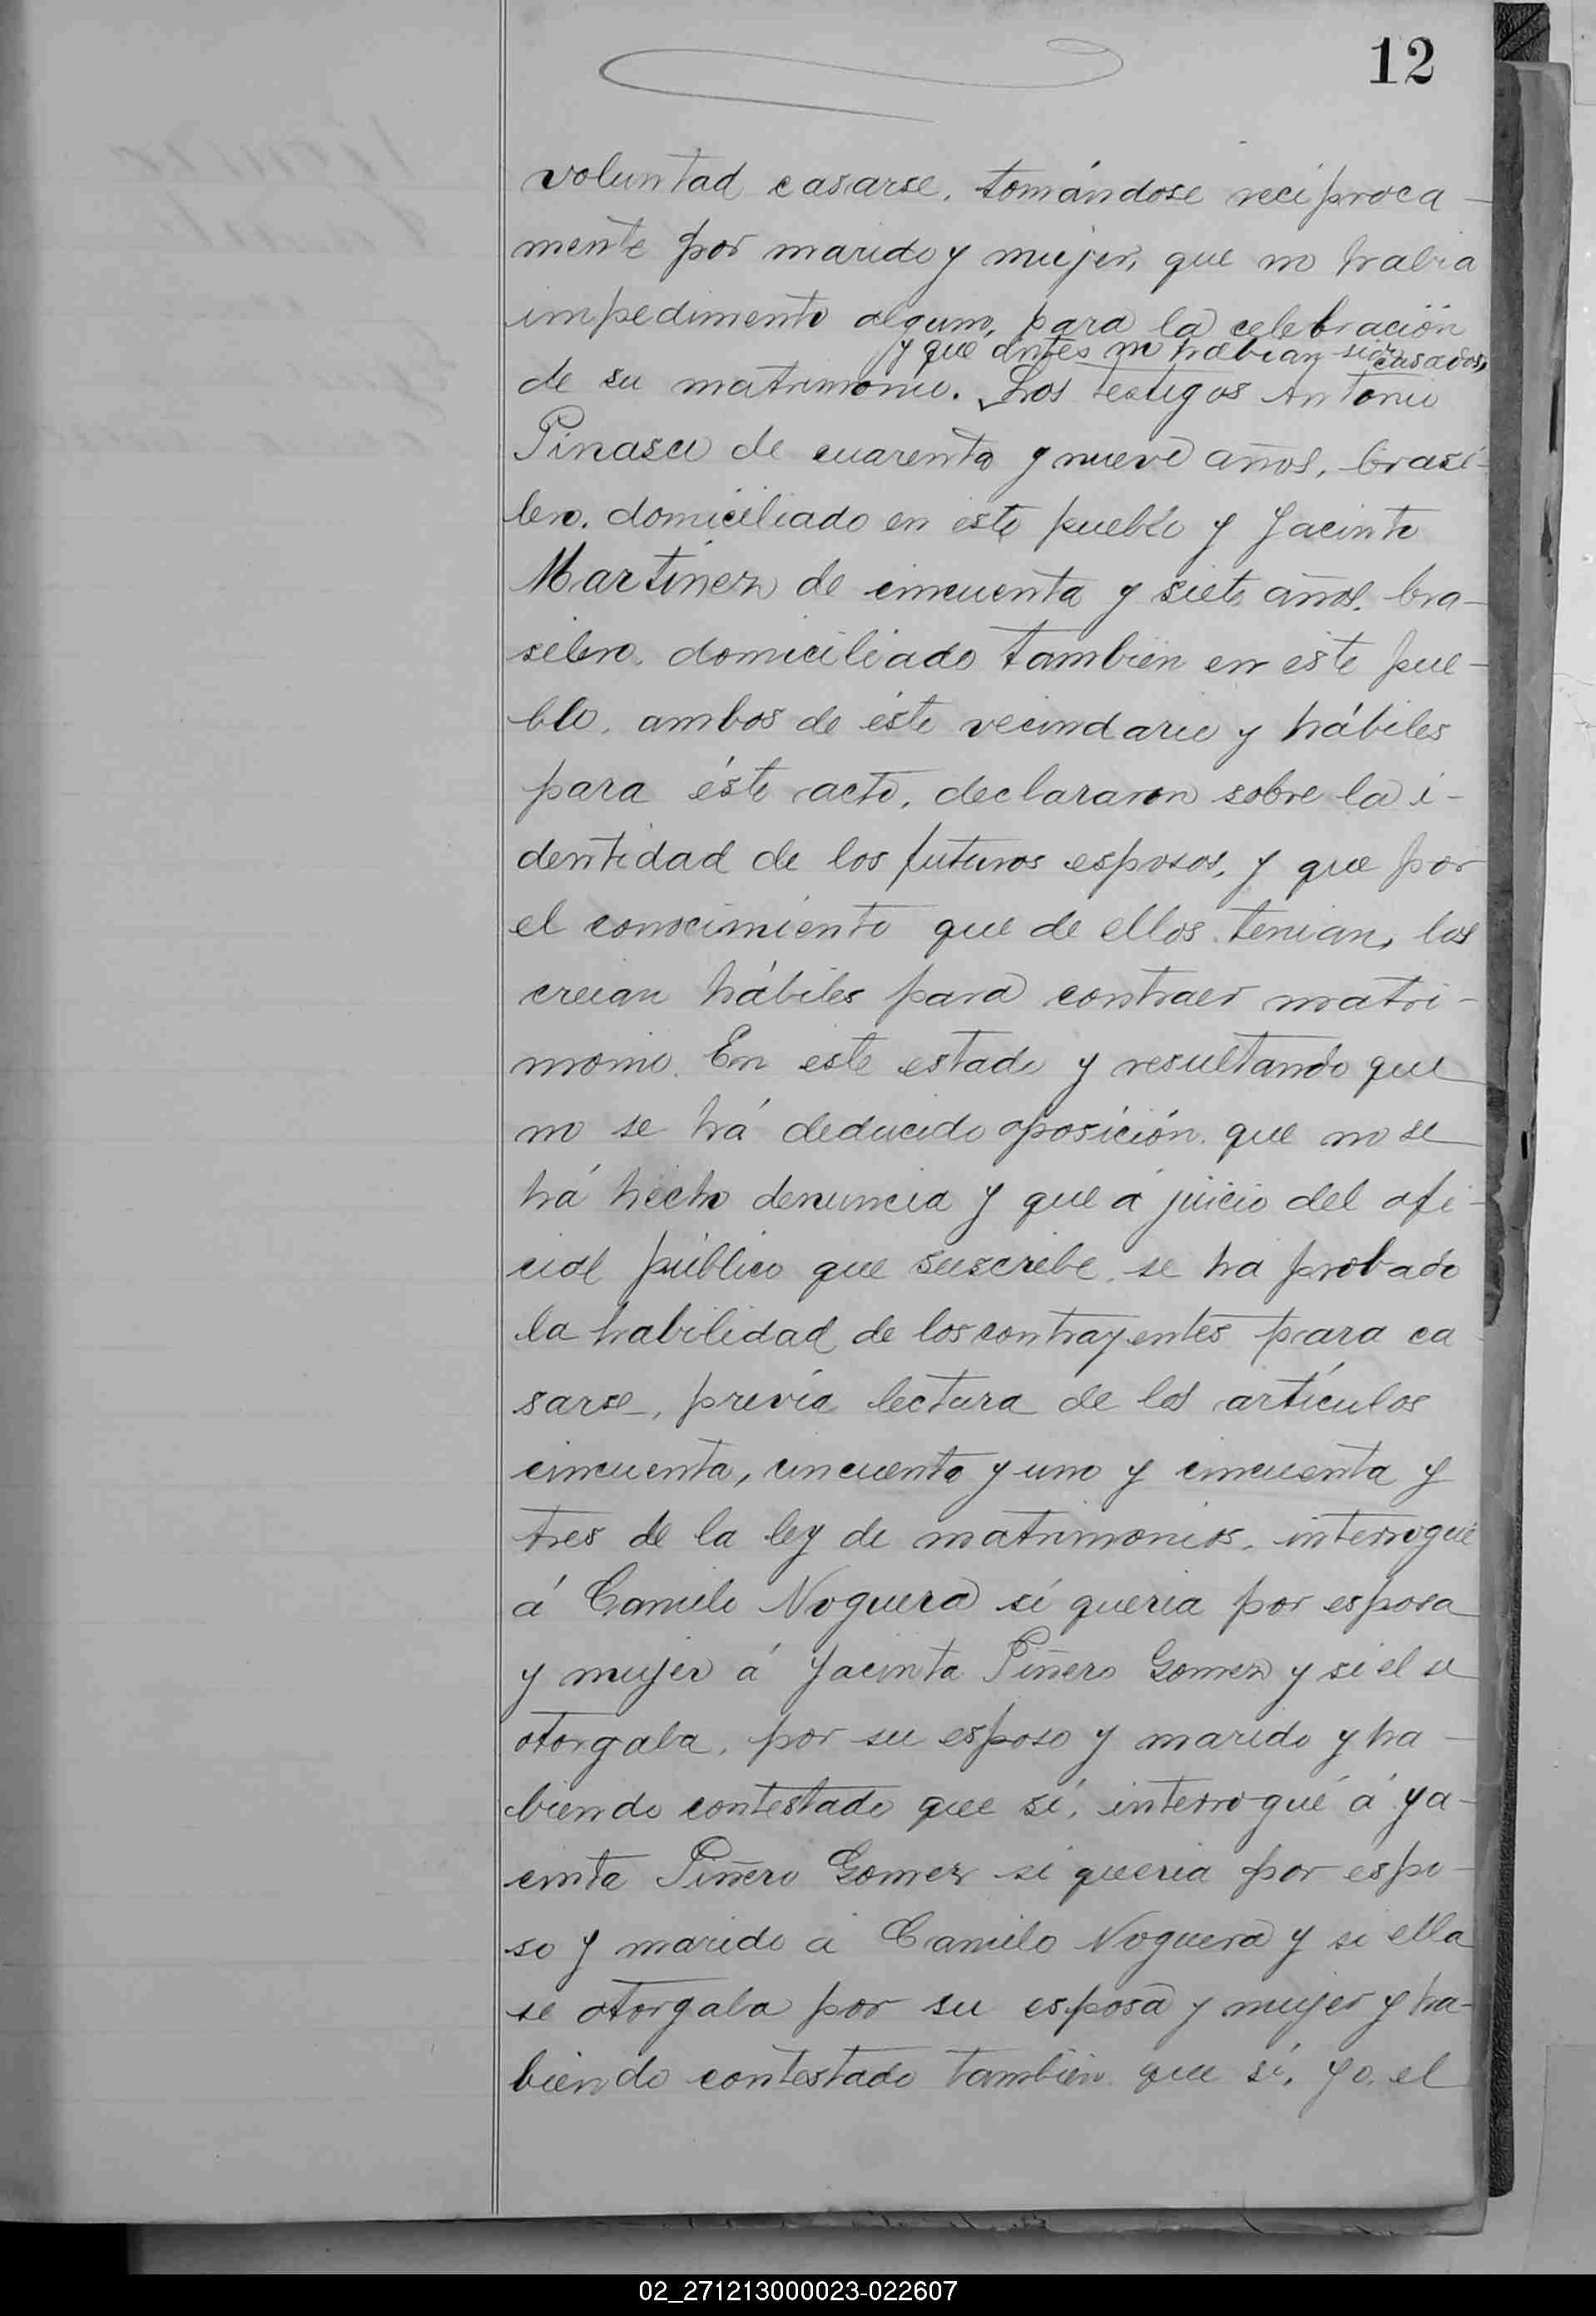 12
voluntad casarse, tomándose recíproca-
mente por marido y mujer, que no habia
impedimento alguno, para la celebración
y que ántes no habian sido casados,
de su matrimonio. Los testigos Antonio
Pinasco de cuarenta y nueve años, brasi-
lero, domiciliado en este pueblo y Jacinto
Martinez de cincuenta y siete años, bra-
silero, domiciliado tambien en este pue-
blo, ambos de éste vecindario y hábiles
para éste acto, declararon sobre la i-
dentidad de los futuros esposos, y que por
el conocimiento que de ellos tenian, los
creian hábiles para contraer matri-
monio. En este estado y resultando que
no se há deducido oposición, que no se
há hecho denuncia y que á juicio del ofi-
cial público que suscribe, se ha probado
la habilidad de los contrayentes para ca
sarse, previa lectura de los artículos
cincuenta, cincuenta y uno y cincuenta y
tres de la ley de matrimonios, interrogué
á Camilo Noguera si queria por esposa
y mujer á Jacinta Piñero Gomez y si el se
otorgaba, por su esposo y marido y ha-
biendo contestado que sí, interrogué á Ja-
cinta Piñero Gomez si queria por espo-
so y marido á Camilo Noguera y si ella
se otorgaba por su esposa y mujer y ha-
biendo contestado tambien que sí, yo, el
02_271213000023-022607